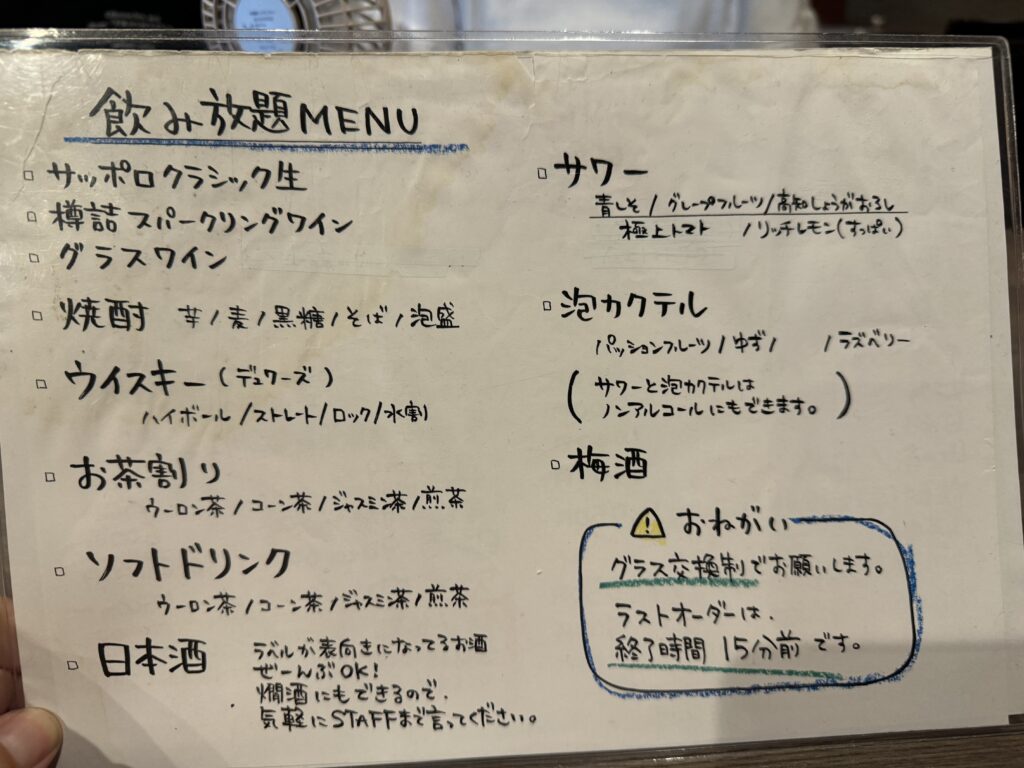 飲み放題MENU
サッポロクラシック生
樽詰スパークリングワイン
グラスワイン
焼酎 芋/麦/黒糖/そば/泡盛
ウイスキー(デュワーズ)
ハイボール/ストレート/ロック/水割
お茶割り
ウーロン茶/コーン茶/ジャスミン茶/煎茶
ソフトドリンク
ウーロン茶/コーン茶/ジャスミン茶/煎茶
日本酒
ラベルが表向きになってるお酒
ぜーんぶOK!
燗酒にもできるので、
気軽にSTAFFまで言ってください。
サワー
青しそ/グレープフルーツ/高知しょうがおろし
極上トマト /リッチレモン(すっぱい)
泡カクテル
パッションフルーツ/ゆず/ /ラズベリー
(サワーと泡カクテルは
ノンアルコールにもできます。)
梅酒
おねがい
グラス交換制でお願いします。
ラストオーダーは、
終了時間15分前です。